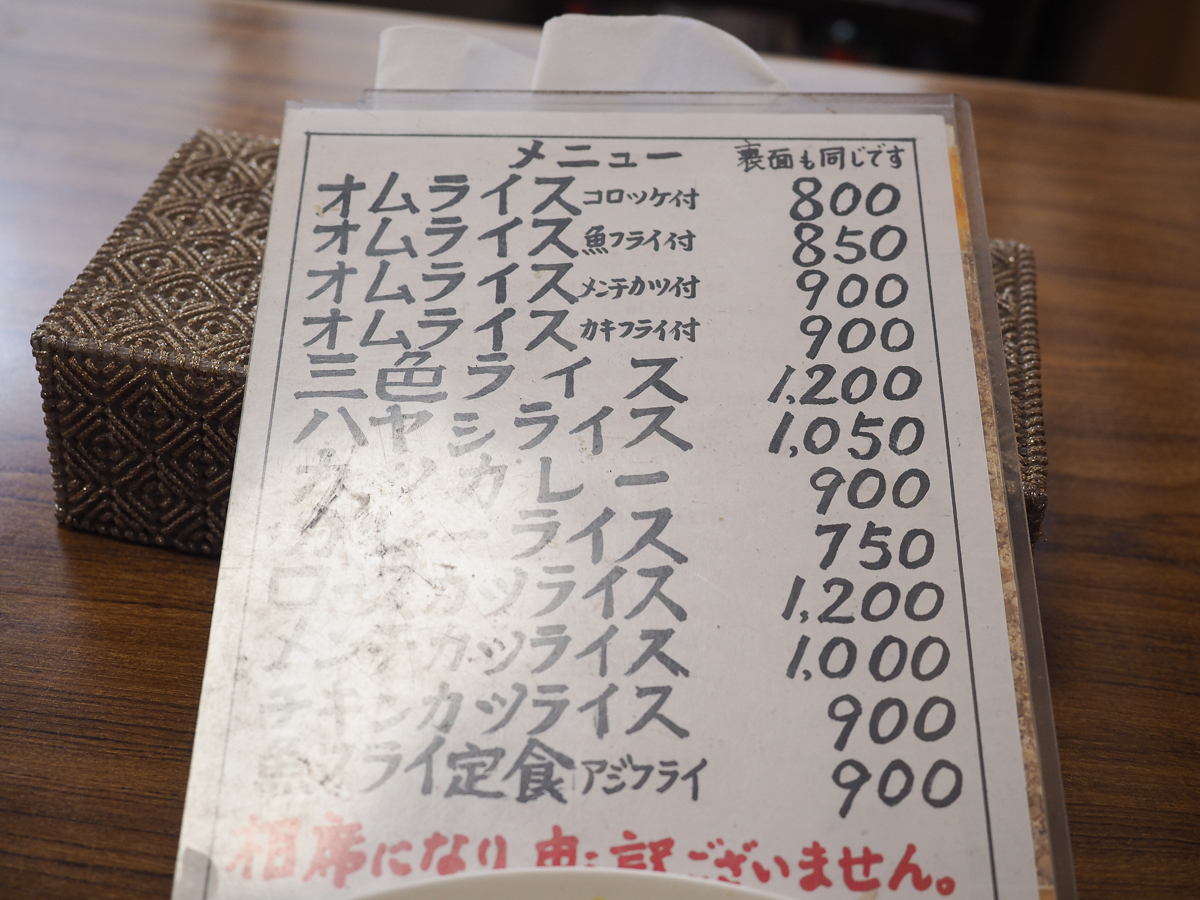 メニュー 裏面も同じです
オムライス コロッケ付 800
オムライス 魚フライ付 850
オムライス メンチカツ付 900
オムライス カキフライ付 900
三色ライス 1,200
ハヤシライス 1,050
カツカレー 900
ライス 750
ロースカツライス 1,200
メンチカツライス 1,000
チキンカツライス 900
魚フライ定食 アジフライ 900
相席になり申し訳ございません。